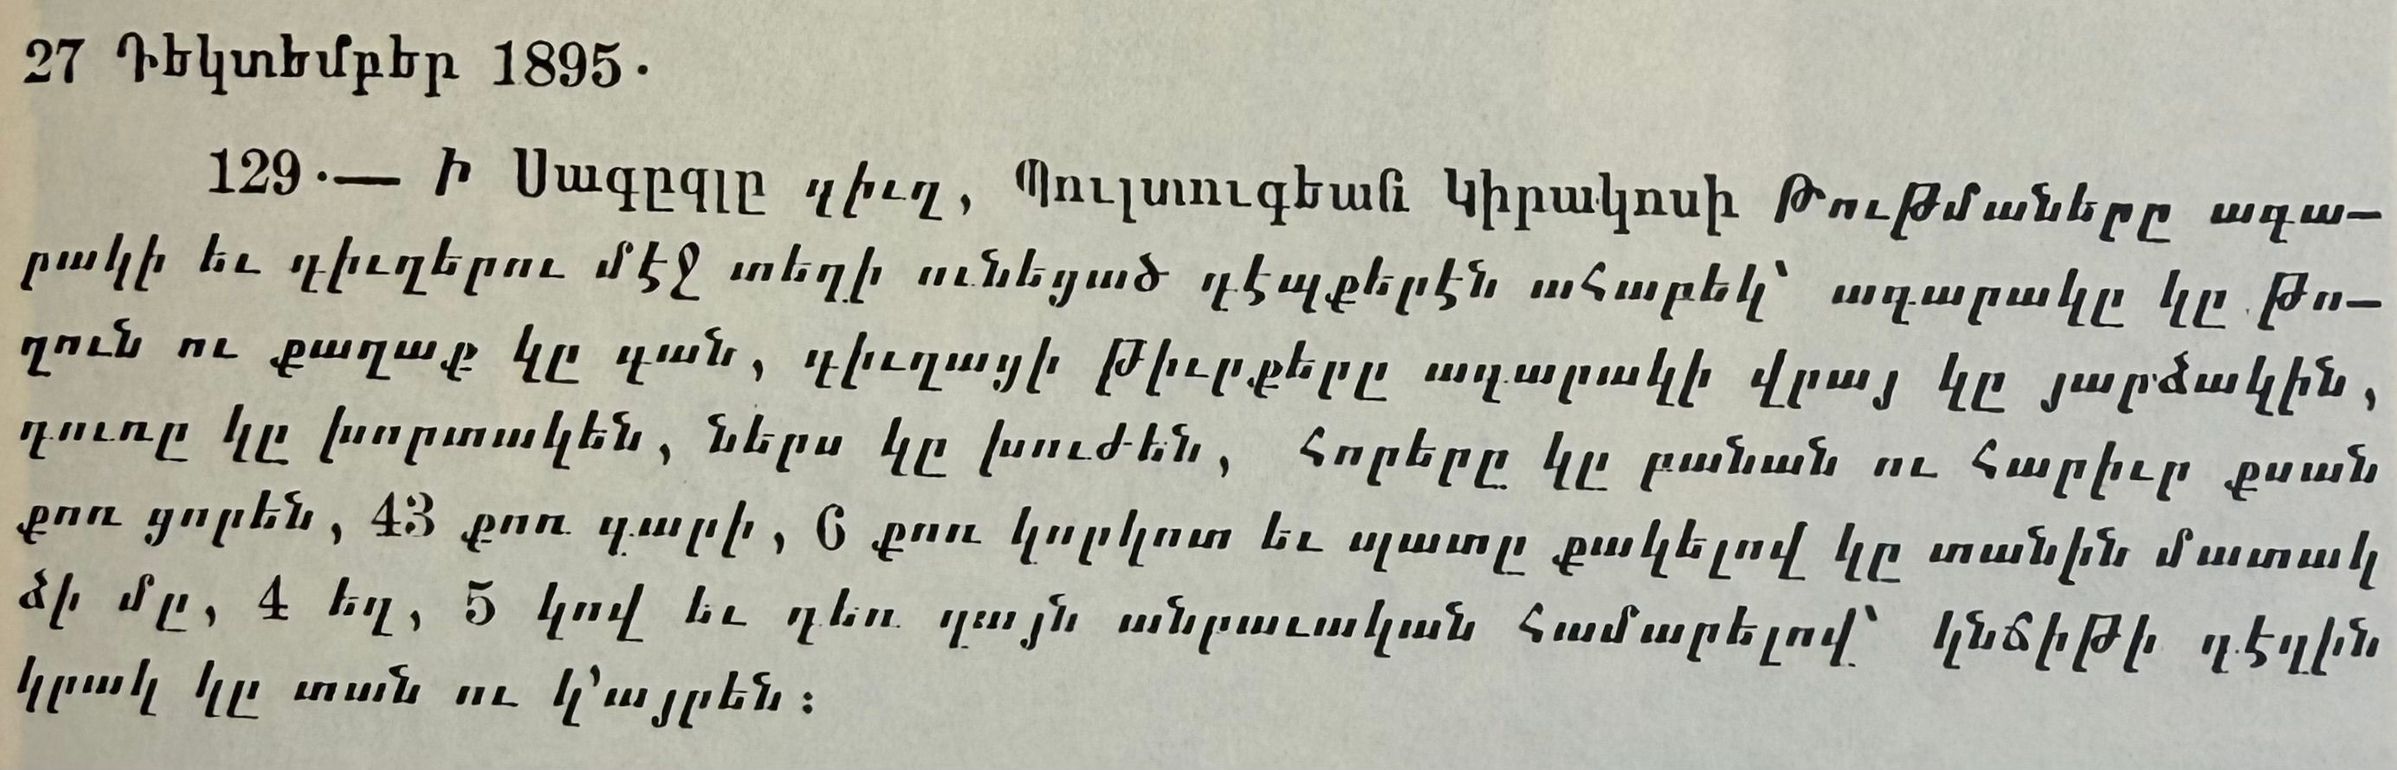 27 Դեկտեմբեր 1895.
129.— Ի Սագըզլը գիւղ, Պուլտուգեան Կիրակոսի Թութմաները ագա—
րակի եւ գիւղերու մէջ տեղի ունեցած դէպքերէն ահաբեկ՝ ագարակը կը թո—
ղուն ու քաղաք կը գան, գիւղացի թիւրքերը ագարակի վրայ կը յարձակին,
դուռը կը խորտակեն, ներս կը խուժեն, հորերը կը բանան ու հարիւր քսան
քոռ ցորեն, 43 քոռ գարի, 6 քոռ կորկոտ եւ պատը քակելով կը տանին մատակ
ձի մը, 4 եզ, 5 կով եւ դեռ զայն անբաւական համարելով՝ կնճիթի դէզին
կրակ կը տան ու կ՚այրեն։